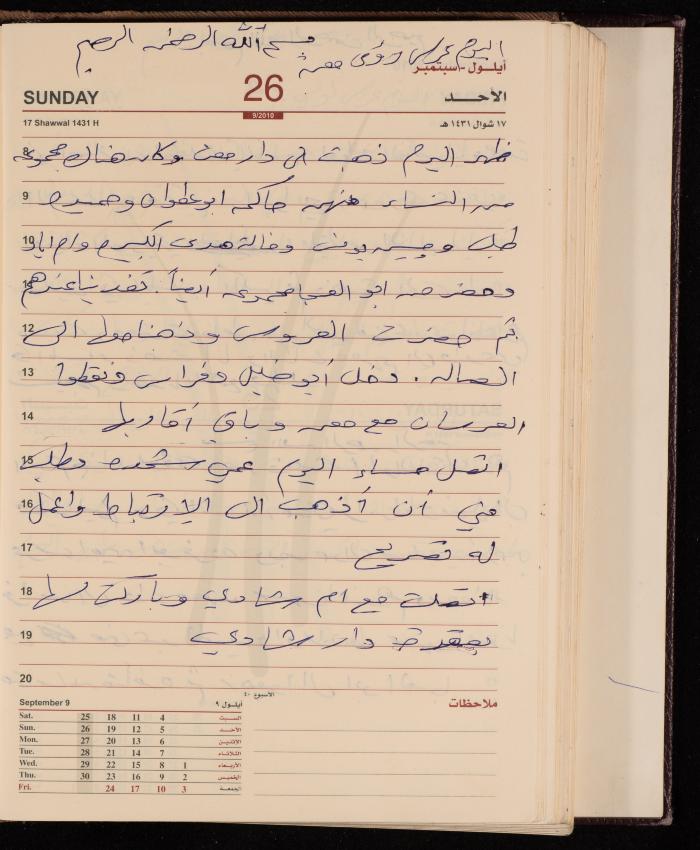 بسم الله الرحمن الرحيم
اليوم عرس رؤى معن
أيلول - سبتمبر
SUNDAY
26
الأحد
17 Shawwal 1431 H
9/2010
١٧ شوال ١٤٣١ هـ
8 ظهر اليوم ذهبت الى دار معن وكان هناك مجموعة
9 من النساء منهن حاكمه ابو عطوان وحميده
10 وخالة هدى الكبيره وام اياد
11 وحضر من ابو الهيجا مجموعه أيضاً. تغدينا عندهم
12 ثم حضرت العروس وذهبنا معها الى
13 الصاله. دخل أبو خليل وفراس ونقطوا
14 العرسان مع معن وباقي أقاربها
15 اتصل مساء اليوم عمي شحده وطلب
16 مني أن أذهب الى الارتباط واعمل
17 له تصريح
18 اتصلت مع ام شادي وباركت لها
19 بعقد دار شادي
20
September 9
الاسبوع ٤٠
أيلول ٩
ملاحظات
Sat. 25 18 11 4 السبت
Sun. 26 19 12 5 الأحد
Mon. 27 20 13 6 الاثنين
Tue. 28 21 14 7 الثلاثاء
Wed. 29 22 15 8 1 الأربعاء
Thu. 30 23 16 9 2 الخميس
Fri. 24 17 10 3 الجمعة